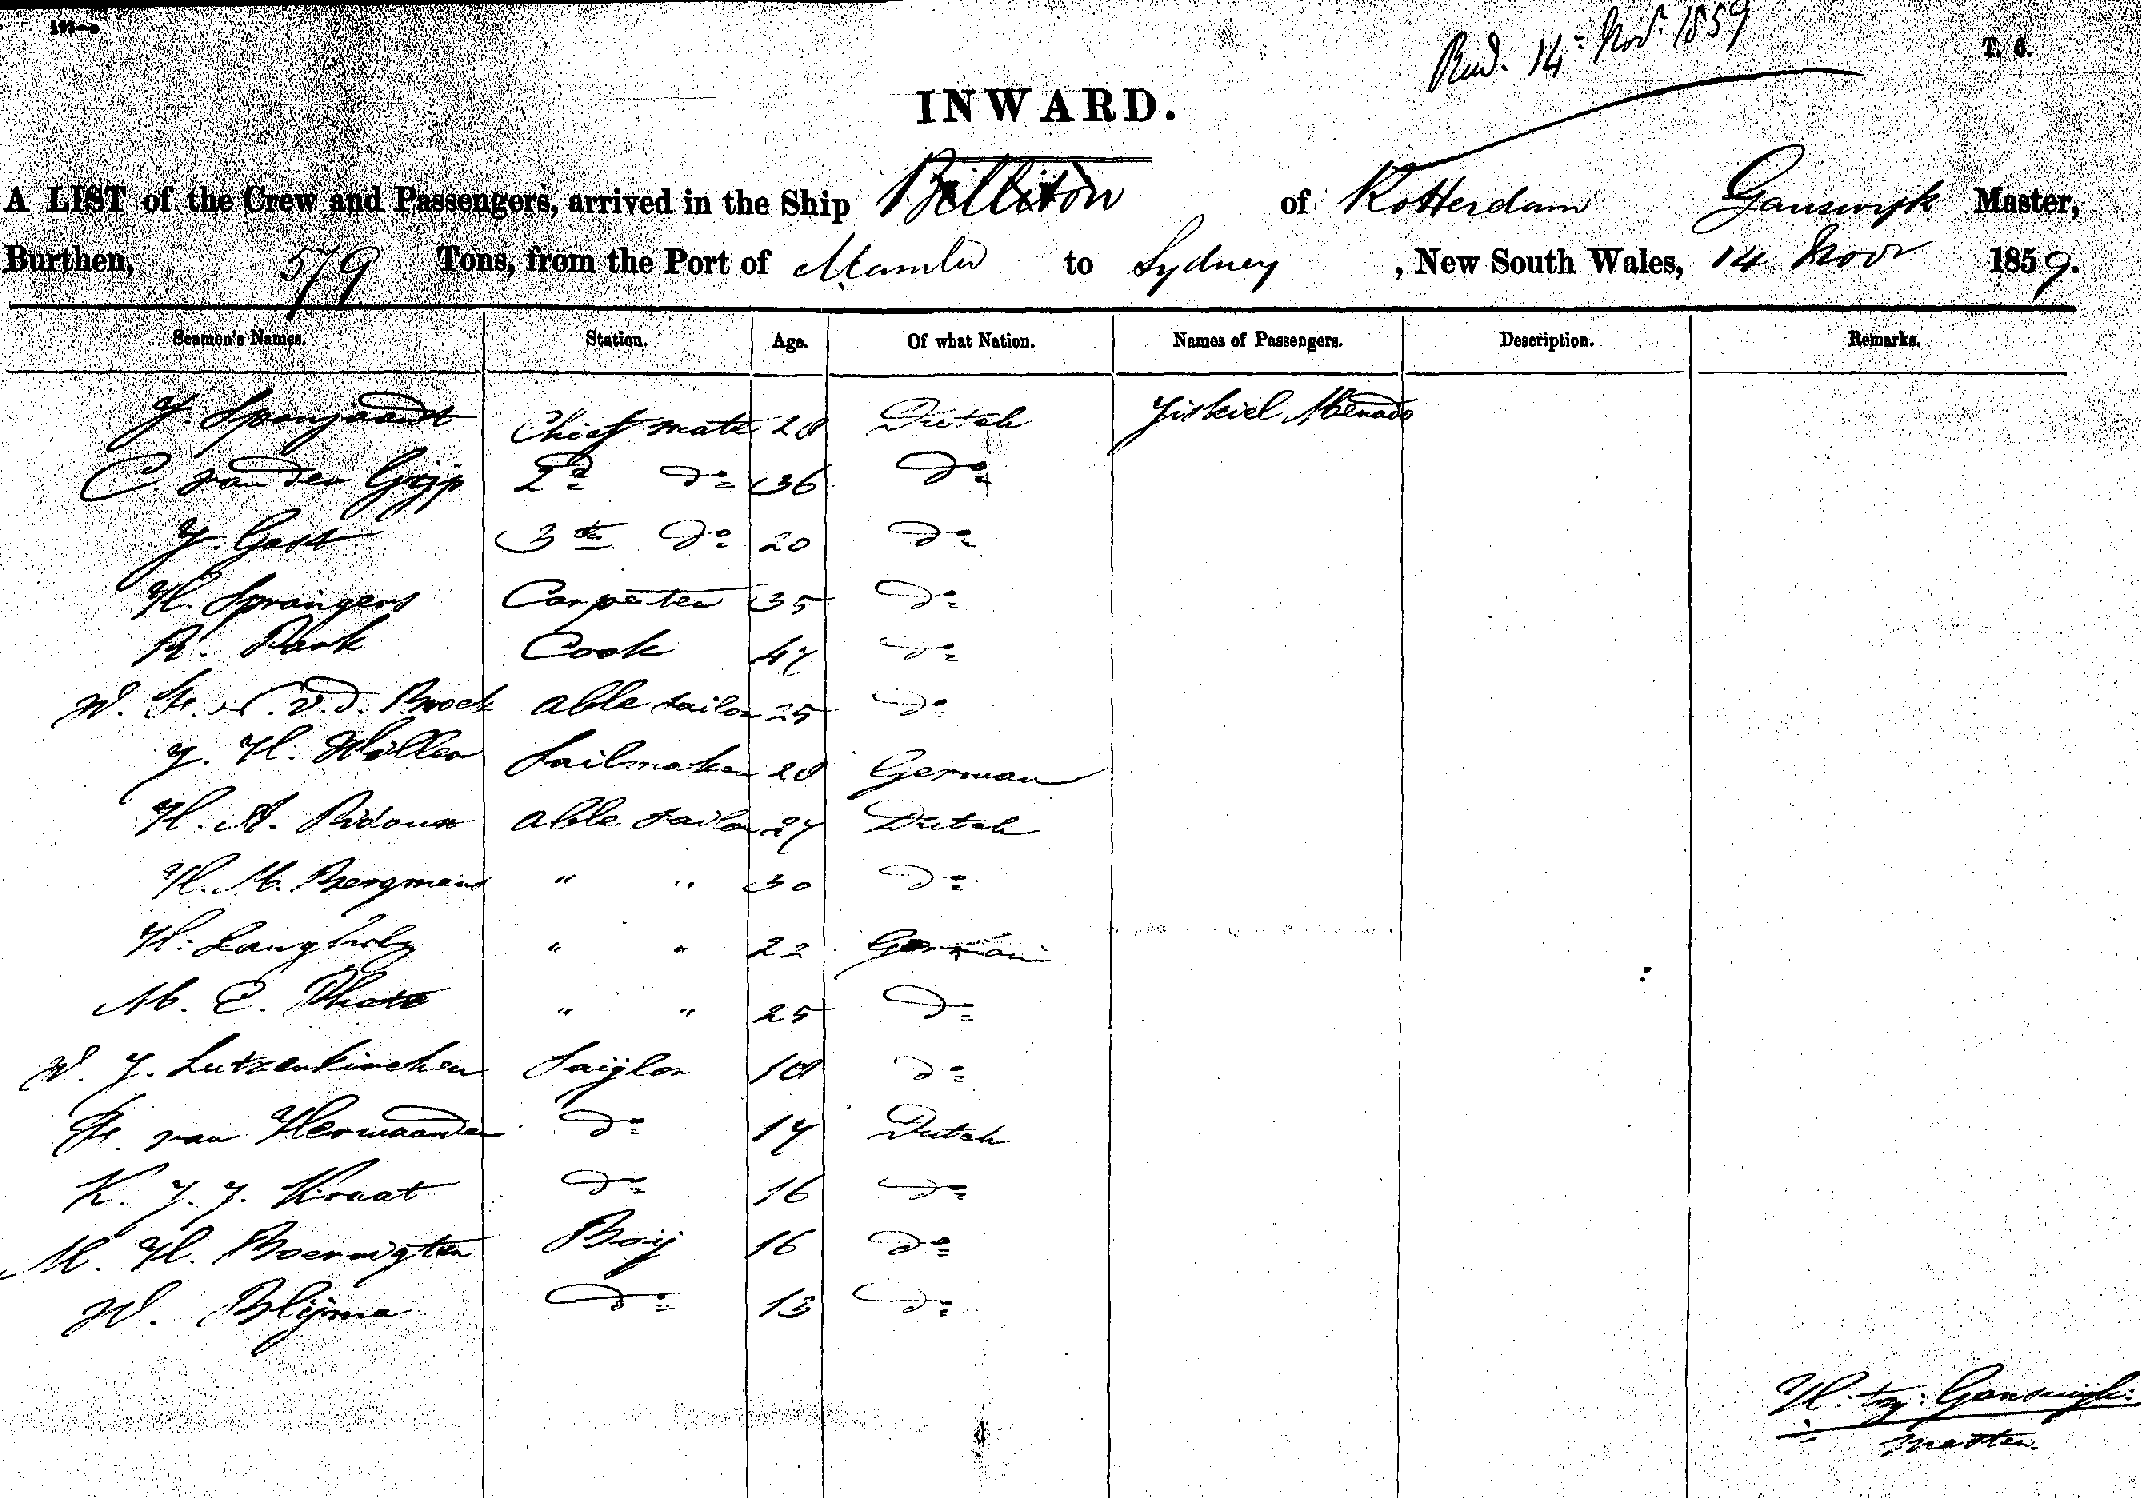 Recd. 14 = Nov. 1859
T. 6.
INWARD.
A LIST of the Crew and Passengers, arrived in the Ship Billiton of Rotterdam Ganswyk Master,
Burthen, 579 Tons, from the Port of to Sydney , New South Wales, 14 Novr 1859.
Seamen's Names. Station. Age. Of what Nation. Names of Passengers. Description. Remarks.
Y. Spanjaardt Chief mate 28 Dutch
C. van der Gijp 2d do 36 do
Y. Gast 3th do 20 do
H. Sprangers Carpeter 35 do
R. Cook 47 do
W. v. d. Broek able sailor 25 do
Y. H. Sailmaker 28 German
H. A. Ridoux able sailor 27 Dutch
H. M. Bergmans " " 30 do
H. " " 22 German
M. C. " " 25 do
W. Y. Lutzenkirchen Saijlor 18 do
Fr. van Herwaarden do 17 Dutch
K. Y. Y. Kraat do 16 do
M. H. Boennigten Boij 16 do
W. Blijma do 13 do
H. Ganswijk
master